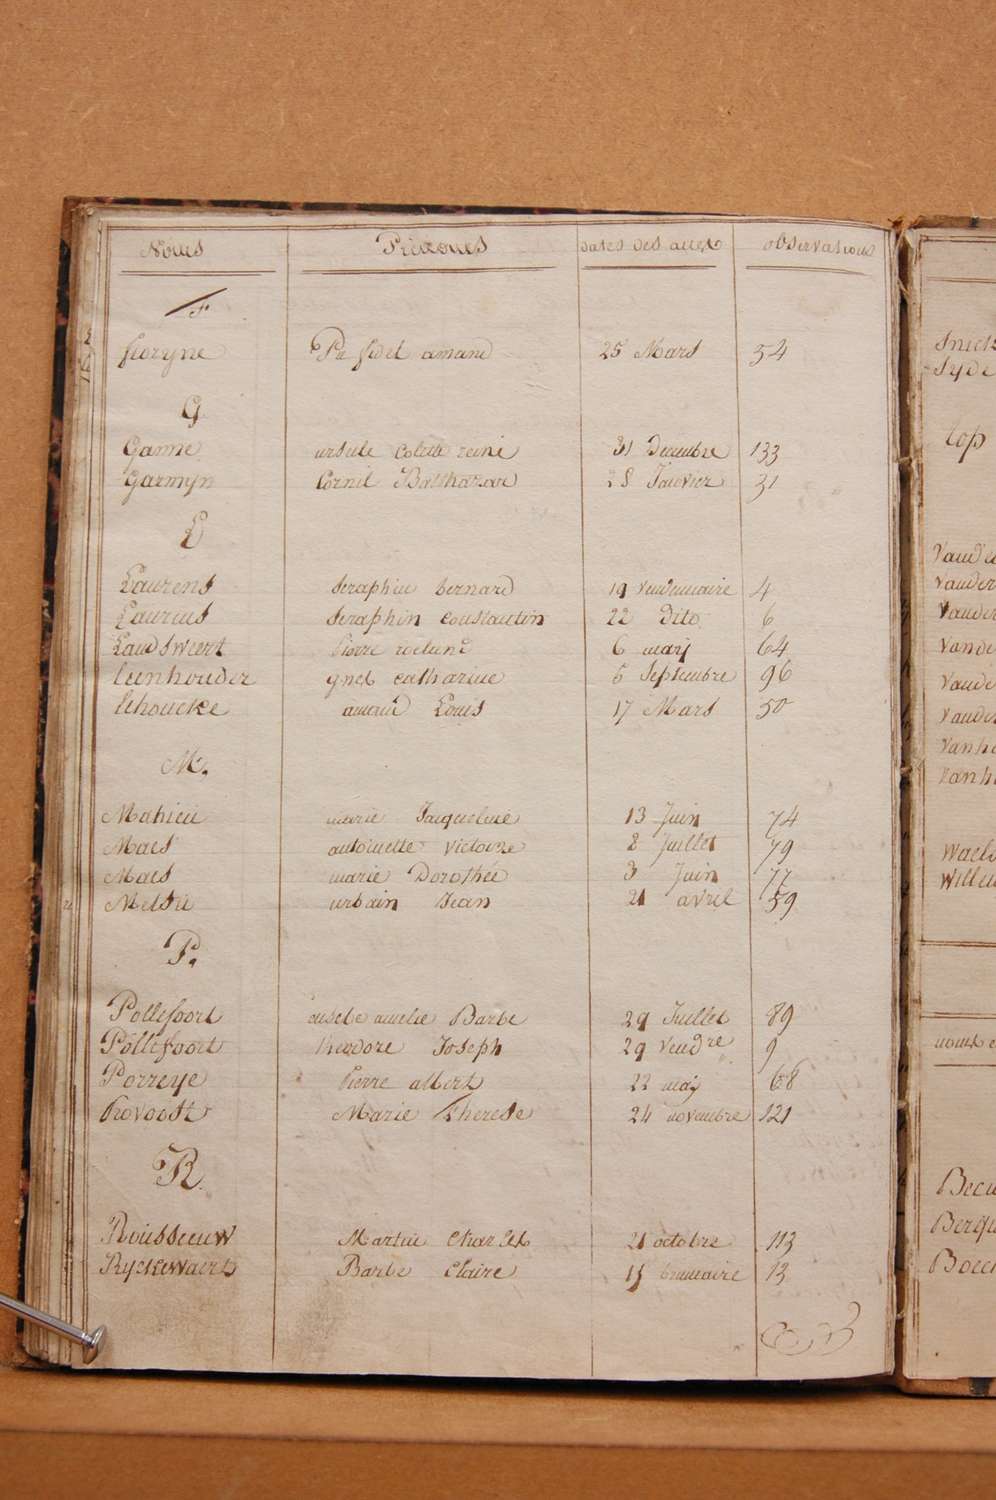 Noms Prénoms dates des actes observations
F
floryne Pre fidel amand 25 Mars 54
G
Ganne ursule Colette reine 31 Decembre 133
Garmyn Cornil Balthazar 28 Janvier 31
L
Laurens seraphin bernard 19 vendemiaire 4
Laureus seraphin constantin 22 dito 6
Landsweert Pierre 6 maij 64
Leenhouder catharine 5 septembre 96
Lehoucke amand Louis 17 Mars 50
M.
Mahieu marie Jacqueline 13 Juin 74
Maes antoinette victoire 8 Juillet 79
Maes marie Dorothée 3 Juin 77
Melsie urbain Jean 21 avril 59
P.
Pollefoort amelie Barbe 29 Juillet 89
Pollefoort theodore Joseph 29 vendre 9
Porreye Pierre albert 22 maij 68
Provoost Marie Therese 24 novembre 121
R
Rousseeuw Martin Charles 21 octobre 113
Ryckewaert Barbe Claire 15 brumaire 13
top
Vander
Vander
Vanho
Vanho
Willem
Becu
Berqu